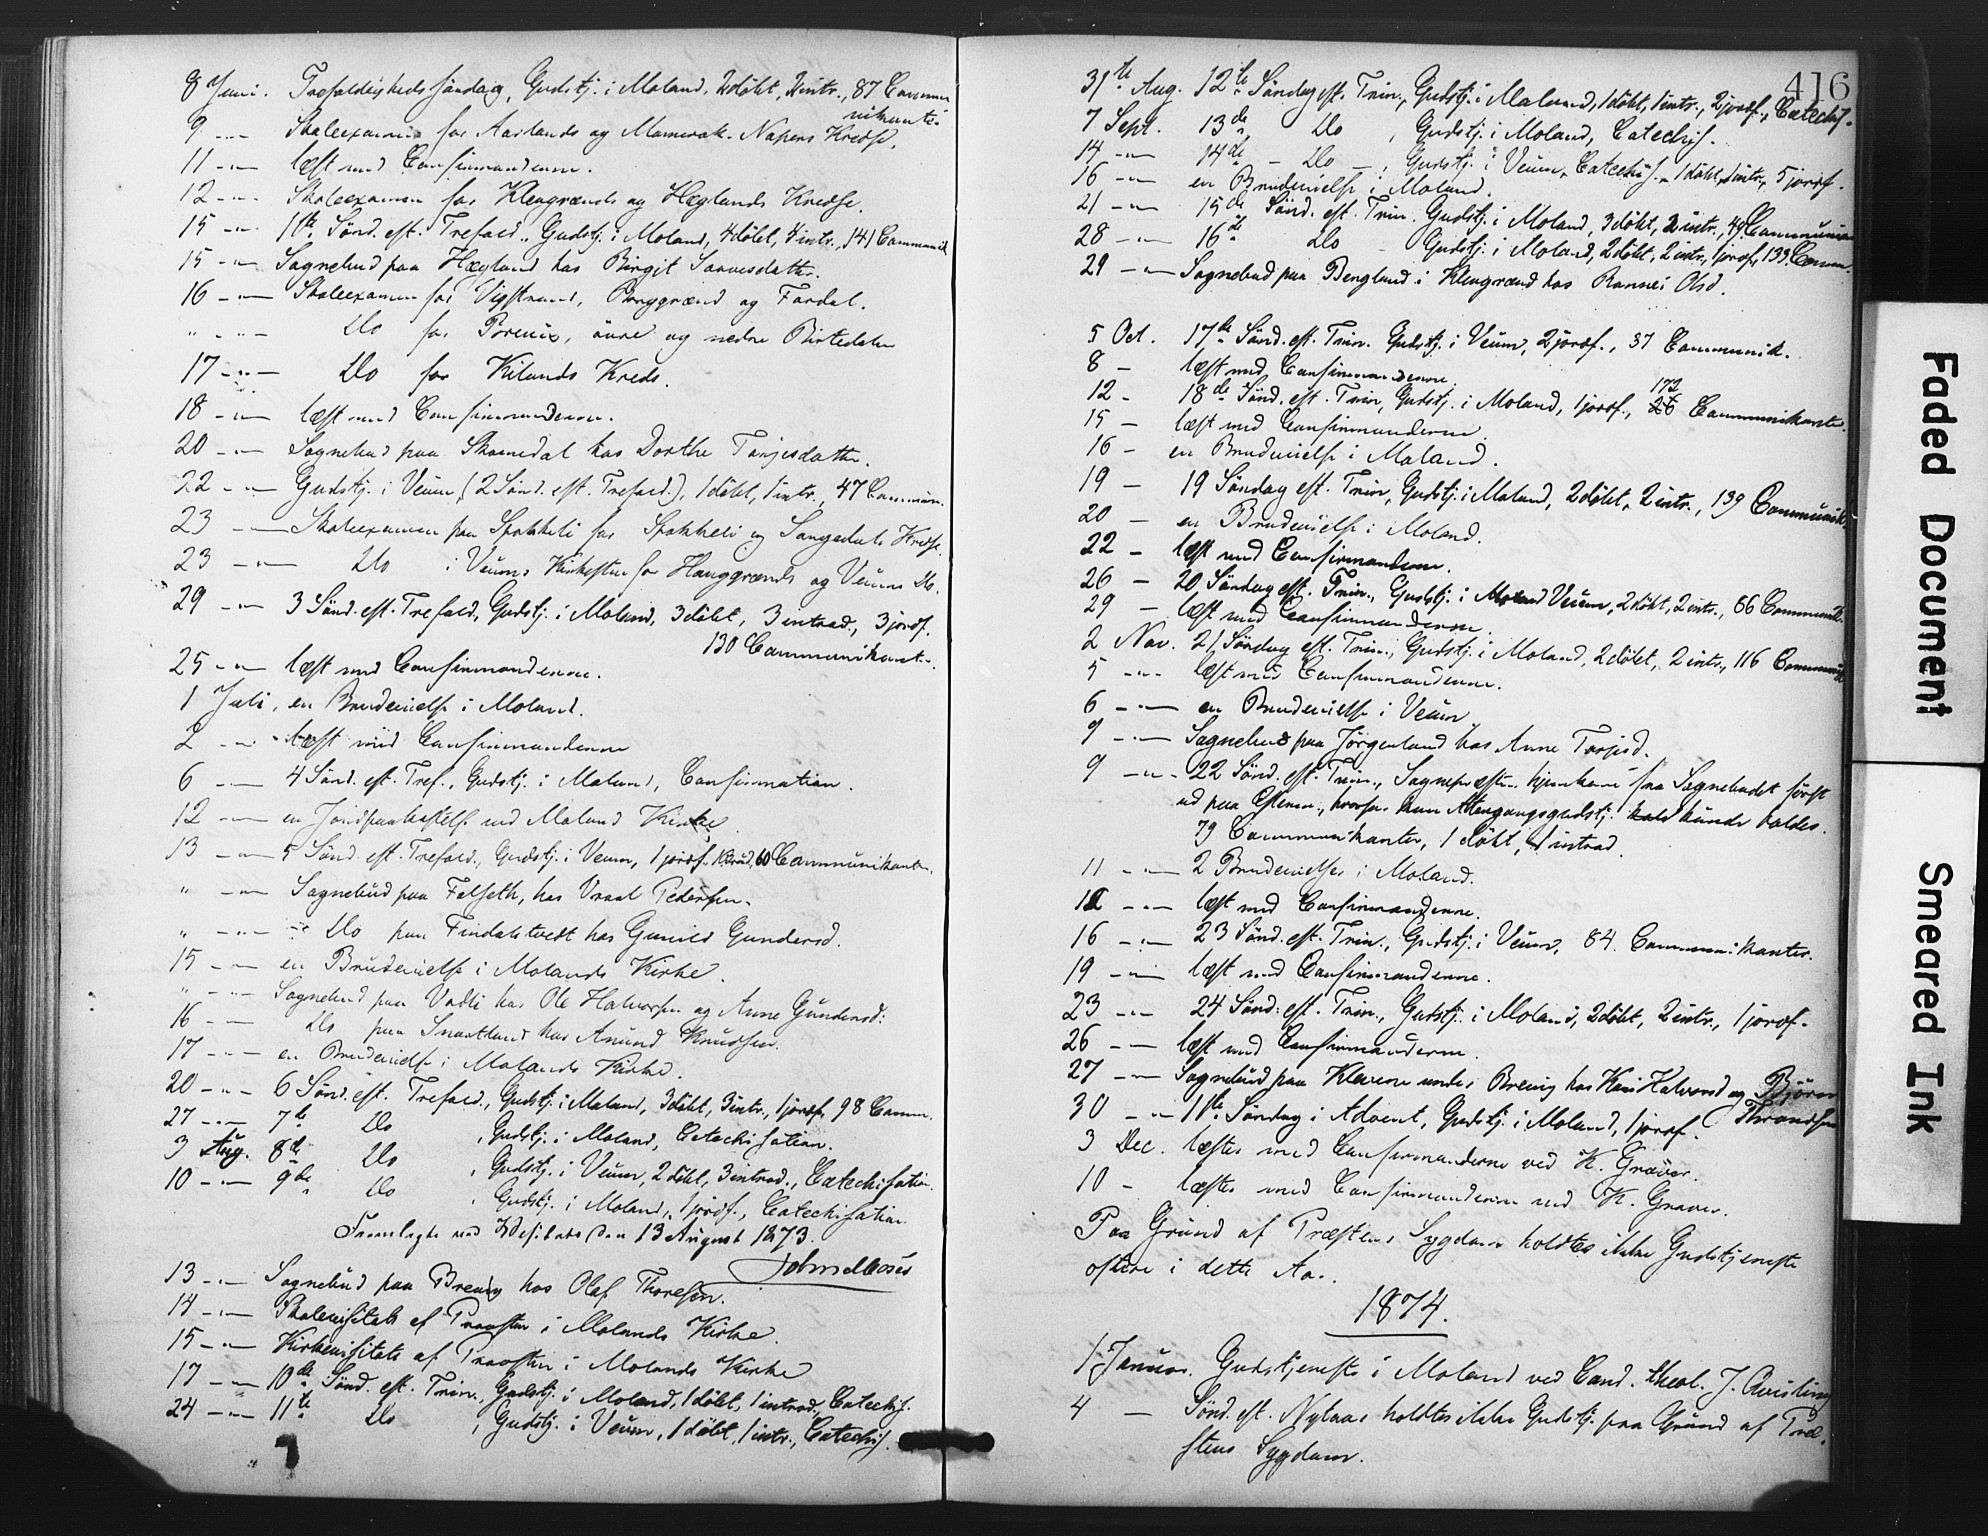 8 Juni. Trefoldigheds söndag, Gudstj. i Moland, 2 döbt, 2 intr., 87 Commu
nikanter.
9 -"- Skoleexamen for Aaslands og Mamerak-Napers Kredse.
11 -"- læst med Confirmanderne.
12 -"- Skoleexamen for Klevgrænds og Hæglands Kredse.
15 -"- 1ste Sönd. eft. Trefold., Gudstj. i Moland, 4 döbt, 4 intr., 141 Communik
15 -"- Sognebud paa Hægland hos Birgit Saavesdatter.
16 -"- Skoleexamen for Vigstrand, Borggrænd og Fardal.
" -"- Do for Breivig, övre og nedre Birtedalen
17 -"- Do for Kilands Kreds.
18 -"- læst med Confirmanderne.
20 -"- Sognebud paa Skomedal hos Dorthe Tarjesdatter.
22 -"- Gudstj. i Veum (2 Sönd. eft. Trefold.), 1 döbt, 1 intr., 47 Commun.
23 -"- Skoleexamen paa Spokkeli for Spokkeli og Songedals Kredse.
23 -"- Do i Veums Kirkestue for Hauggrænds og Veums Do.
29 -"- 3 Sönd. eft. Trefold, Gudstj. i Moland, 3 döbt, 3 introd., 3 jordf.
130 Communikant.
25 -"- læst med Confirmanderne.
1 Juli, en Brudevielse i Moland.
2 -"- læst med Confirmanderne
6 -"- 4 Sönd. eft. Tref., Gudstj. i Moland, Confirmation.
12 -"- en Jordpaakastelse ved Moland Kirke
13 -"- 5 Sönd. eft. Trefold., Gudstj. i Veum, 1 jordf. 60 Communikanter.
" -"- Sognebud paa Felseth, hos Vraal Pedersen.
" -"- Do paa Findalstvedt hos Gunild Gundersd.
15 -"- en Brudevielse i Molands Kirke.
" -"- Sognebud paa Vadli hos Ole Halvorsen og Anne Gundersd.
16 -"- Do paa Snartland hos Anund Knudsen.
17 -"- en Brudevielse i Molands Kirke.
20 -"- 6 Sönd. eft. Trefold., Gudstj. i Moland, 3 döbt, 3 intr., 1 jordf., 98 Comm.
27 -"- 7de Do , Gudstj. i Moland, Catechisation.
3 Aug. 8de Do , Gudstj. i Veum, 2 döbt, 3 introd., Catechisation.
10 -"- 9de Do , Gudstj. i Moland, 1 jordf., Catechisation.
Fremlagte ved Visitats den 13 August 1873.
13 -"- Sognebud paa Breivig hos Olaf Thoresen.
14 -"- Skolevisitats af Provsten i Molands Kirke.
15 -"- Kirkevisitats af Provsten i Molands Kirke
17 -"- 10de Sönd. eft. Trin., Gudstj. i Moland, 1 döbt, 1 introd., Catechis.
24 -"- 11te Do , Gudstj. i Veum, 1 döbt, 1 intr., Catechis.
416
31te Aug. 12te Söndag eft. Trin., Gudstj. i Moland, 1 döbt, 1 intr., 2 jordf., Catechis.
7 Sept. 13de Do , Gudstj. i Moland, Catechis.
14 -"- 14de - Do - , Gudstj. i Veum, Catechis., 1 döbt, 1 intr., 5 jordf.
16 -"- en Brudevielse i Moland.
21 -"- 15de Sönd. eft. Trin. Gudstj. i Moland, 3 döbt, 2 intr., 49 Communik
28 -"- 16de Do Gudstj. i Moland, 2 döbt, 2 intr., 1 jordf., 133 Comm.
29 -"- Sognebud paa Bergland i Klevgrænd hos Rannei Olsd.
5 Oct. 17de Sönd. eft. Trin. Gudstj. i Veum, 2 jordf., 37 Communik.
8 - læst med Confirmanderne.
12 - 18de Sönd. eft. Trin., Gudstj. i Moland, 1 jordf., 172 Communikanter.
15 - læst med Confirmanderne.
16 - en Brudevielse i Moland.
19 - 19 Söndag eft. Trin., Gudstj. i Moland, 2 döbt, 2 intr., 139 Communik
20 - en Brudevielse i Moland.
22 - læst med Confirmanderne.
26 - 20 Söndag eft. Trin., Gudstj. i Moland Veum, 2 döbt, 2 intr., 66 Communik.
29 - læst med Confirmanderne.
2 Nov. 21 Söndag eft. Trin., Gudstj. i Moland, 2 döbt, 2 intr., 116 Communik
5 -"- læst med Confirmanderne.
6 -"- en Brudevielse i Veum
9 -"- Sognebud paa Jörgenland hos Anne Torjusd.
9 -"- 22 Sönd. eft. Trin., Sognepræsten hjemkom fra Sognebudet först
ud paa Efterm., hvorfor kun Altergangsgudstj. hold kunde holdes.
79 Communikanter, 1 döbt, 1 introd.
11 -"- 2 Brudevielser i Moland.
12 -"- læst med Confirmanderne.
16 -"- 23 Sönd. eft. Trin., Gudstj. i Veum, 84 Communikanter.
19 -"- læst med Confirmanderne.
23 -"- 24 Sönd. eft. Trin., Gudstj. i Moland, 2 döbt, 2 intr., 1 jordf.
26 -"- læst med Confirmanderne.
27 -"- Sognebud paa Kleivene under Breivig hos Kari Halvorsd og Björn
30 -"- 1ste Söndag i Advent, Gudstj. i Moland, 1 jordf. Throndsen
3 Dec. læstes med Confirmanderne ved K. Graver.
10 - læstes med Confirmanderne ved K. Graver.
Paa Grund af Præstens Sygdom holdtes ikke Gudstjeneste
oftere i dette Aar.
1874.
1 Januar. Gudstjeneste i Moland ved Cand. theol. J. Qvisling
4 - Sönd. eft. Nytaar holdtes ikke Gudstj. paa Grund af Præ-
stens Sygdom.
Faded Document
Smeared Ink